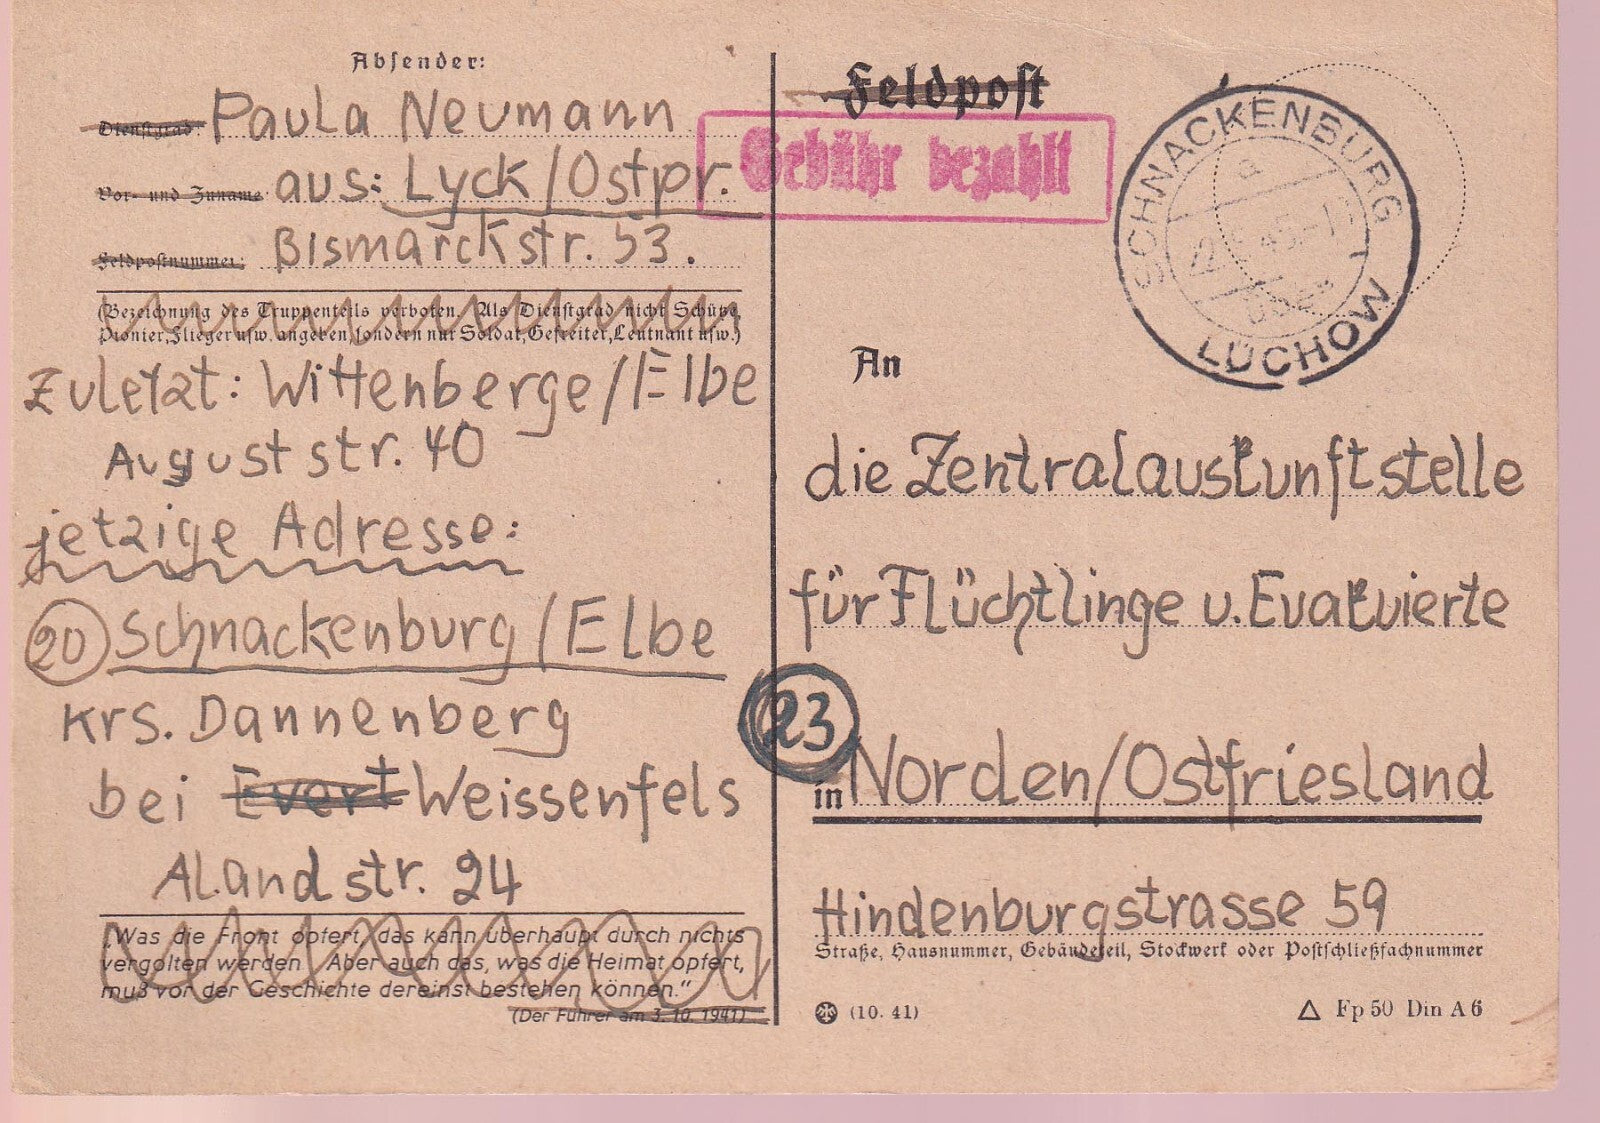 Absender:
Dienstgrad: Paula Neumann
Vor- und Zuname aus: Lyck/Ostpr.
Feldpostnummer: Bismarckstr. 53.
(Bezeichnung des Truppenteils verboten. Als Dienstgrad nicht Schütze,
Pionier, Flieger usw. angeben, sondern nur Soldat, Gefreiter, Leutnant usw.)
Zuletzt: Wittenberge/Elbe
Auguststr. 40
jetzige Adresse:
20 Schnackenburg/Elbe
Krs. Dannenberg
bei Evert Weissenfels
Alandstr. 24
„Was die Front opfert, das kann überhaupt durch nichts
vergolten werden. Aber auch das, was die Heimat opfert,
muß vor der Geschichte dereinst bestehen können.“
(Der Führer am 3. 10. 1941)
Feldpost
Gebühr bezahlt
SCHNACKENBURG
a
LÜCHOW
An
die Zentralauskunftstelle
für Flüchtlinge u. Evakuierte
23
in Norden/Ostfriesland
Hindenburgstrasse 59
Straße, Hausnummer, Gebäudeteil, Stockwerk oder Postschließfachnummer
(10. 41)
Fp 50 Din A 6